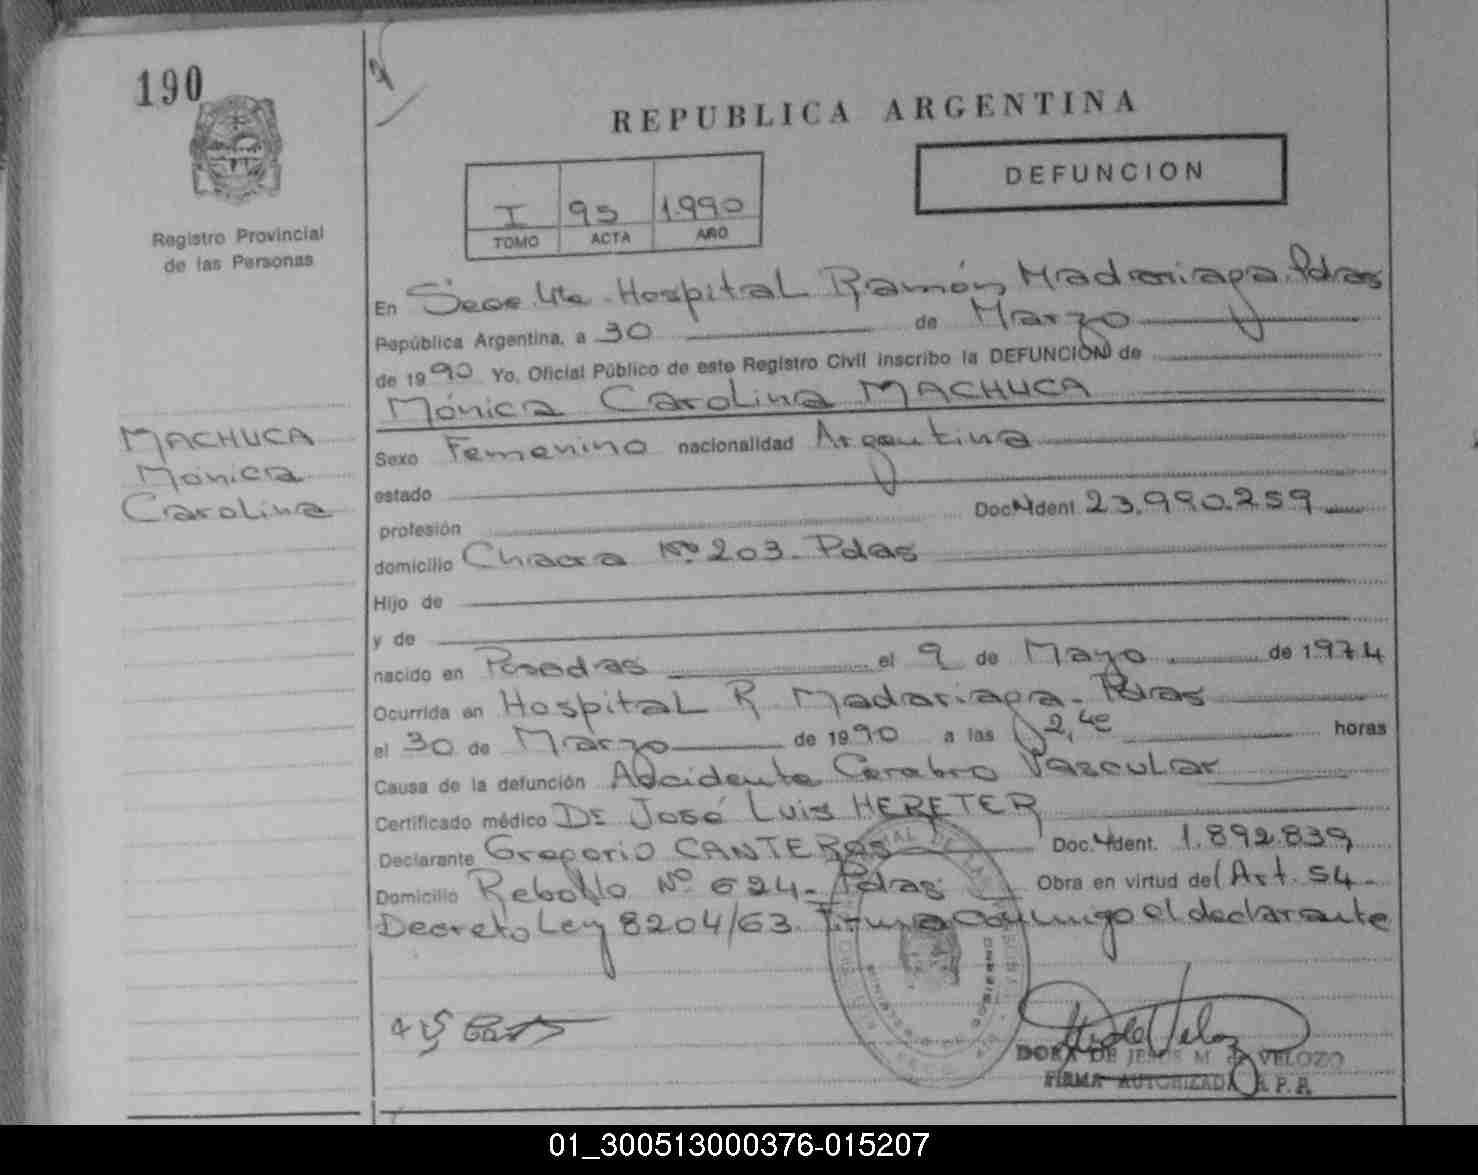 190
REPUBLICA ARGENTINA
DEFUNCION
I 95 1.990
TOMO ACTA AÑO
Registro Provincial
de las Personas
En Secc. 4ta. Hospital Ramón Madariaga. Pdas
República Argentina, a 30 de Marzo
de 1990 Yo, Oficial Público de este Registro Civil inscribo la DEFUNCION de
Mónica Carolina MACHUCA
MACHUCA
Mónica
Carolina
Sexo Femenino nacionalidad Argentina
estado
profesión Doc. Ident. 23.990.259
domicilio Chacra Nº 203. Pdas
Hijo de
y de
nacido en Posadas el 9 de Mayo de 1974
Ocurrida en Hospital R. Madariaga. Pdas
el 30 de Marzo de 1990 a las 2,40 horas
Causa de la defunción Accidente Cerebro Vascular
Certificado médico Dr José Luis HERETER
Declarante Gregorio CANTEROS Doc. Ident. 1.892.839
Domicilio Rebollo Nº 624. Pdas Obra en virtud del Art. 54.
Decreto Ley 8204/63. Firma conmigo el declarante
DORA DE JESUS M. de VELOZO
FIRMA AUTORIZADA R.P.P.
01_300513000376-015207